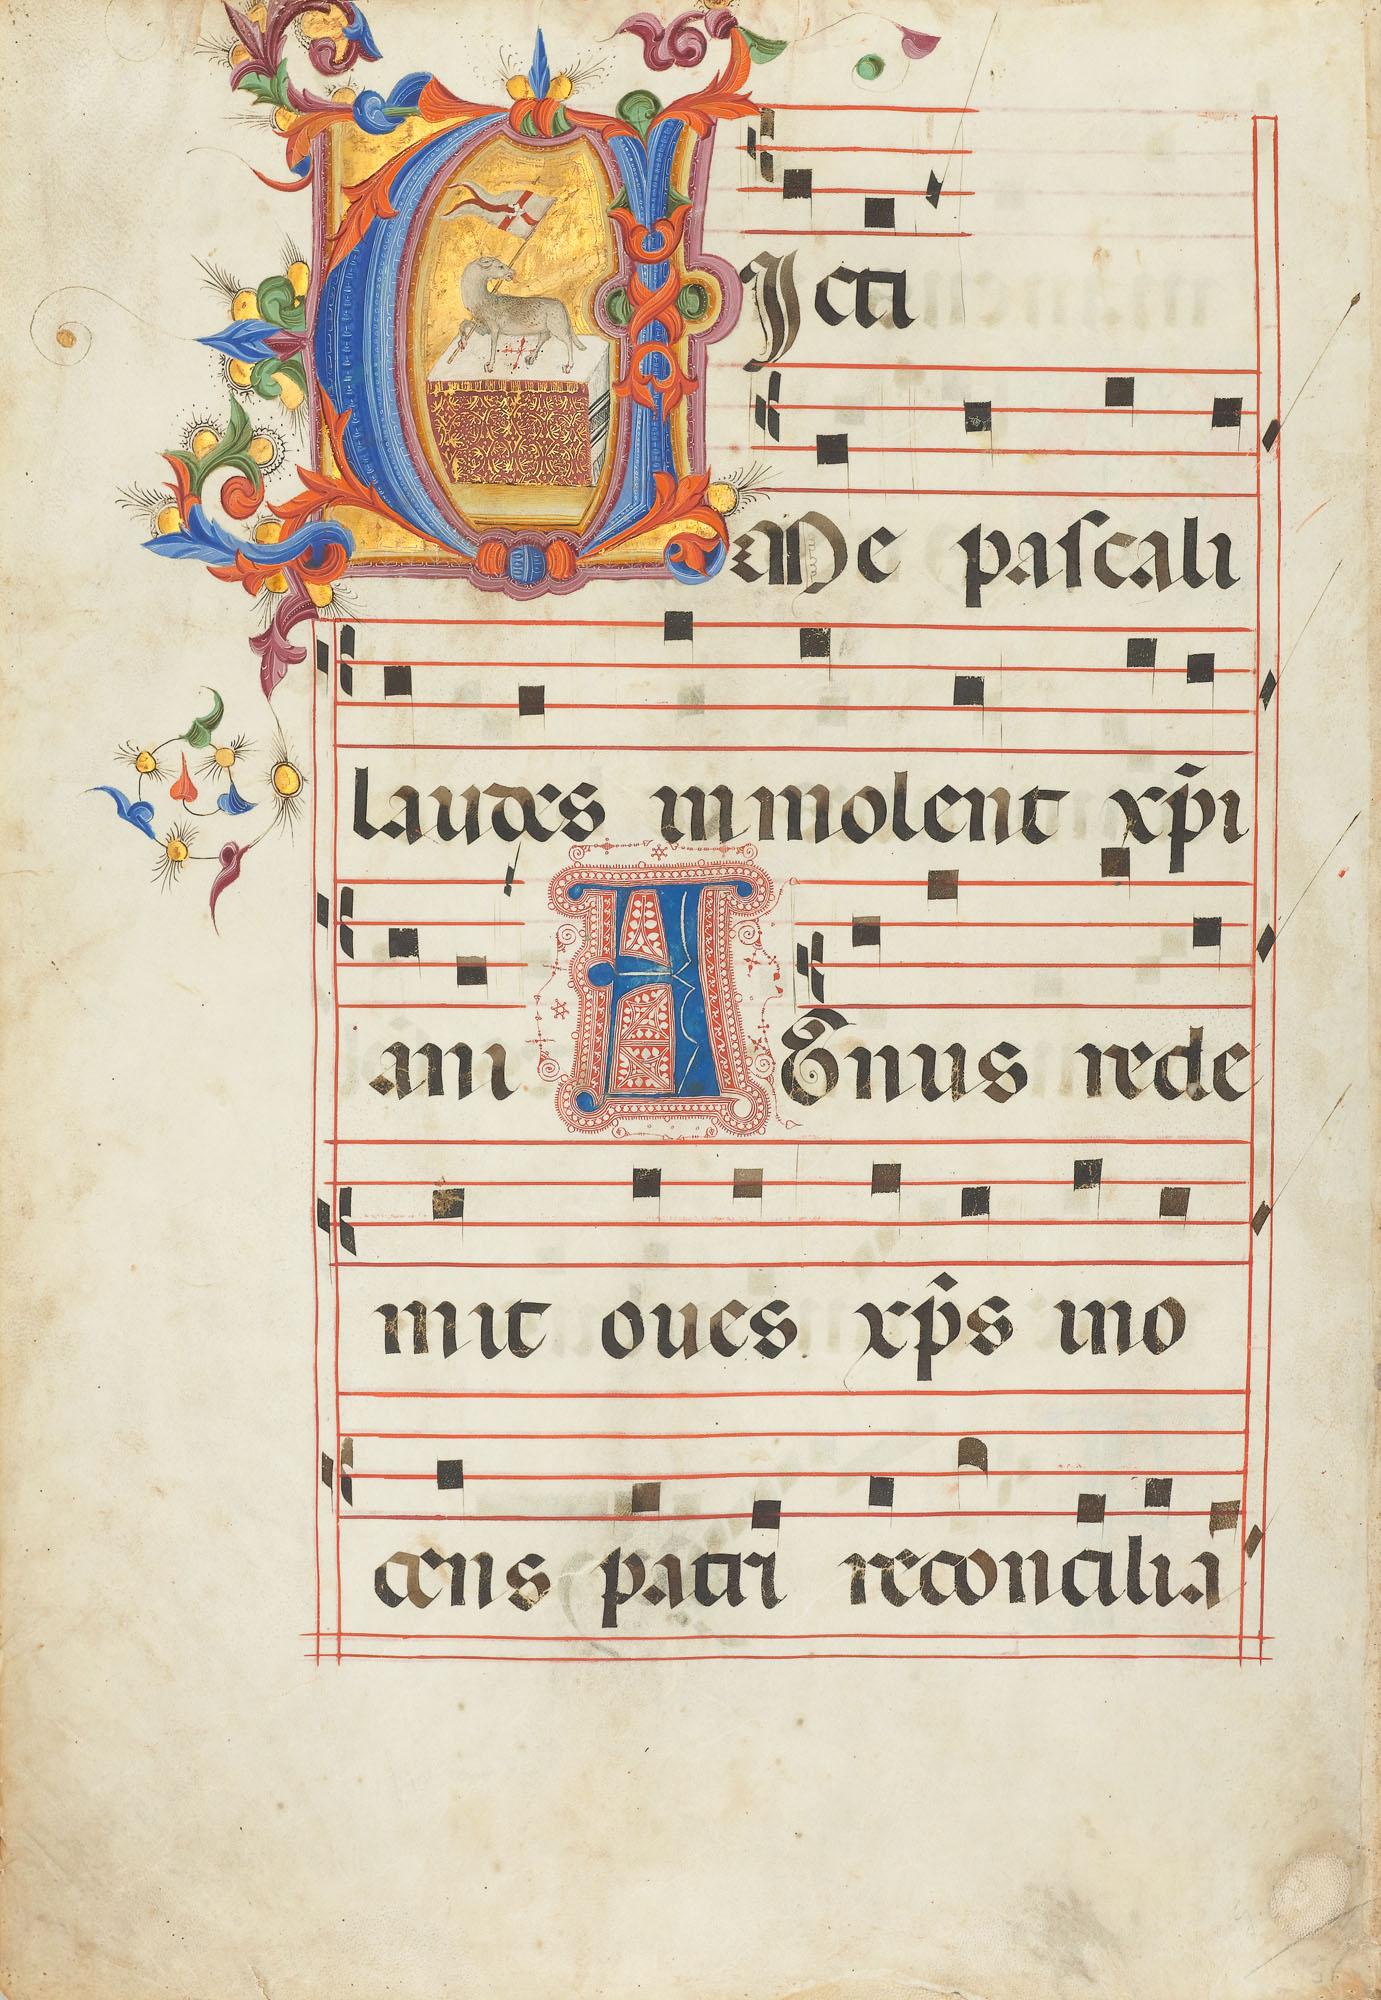 VIcti
Me pascali
laudes inmolent xp̄i
ani AGnus rede
mit oues xp̄s ino
cens patri reconcilia